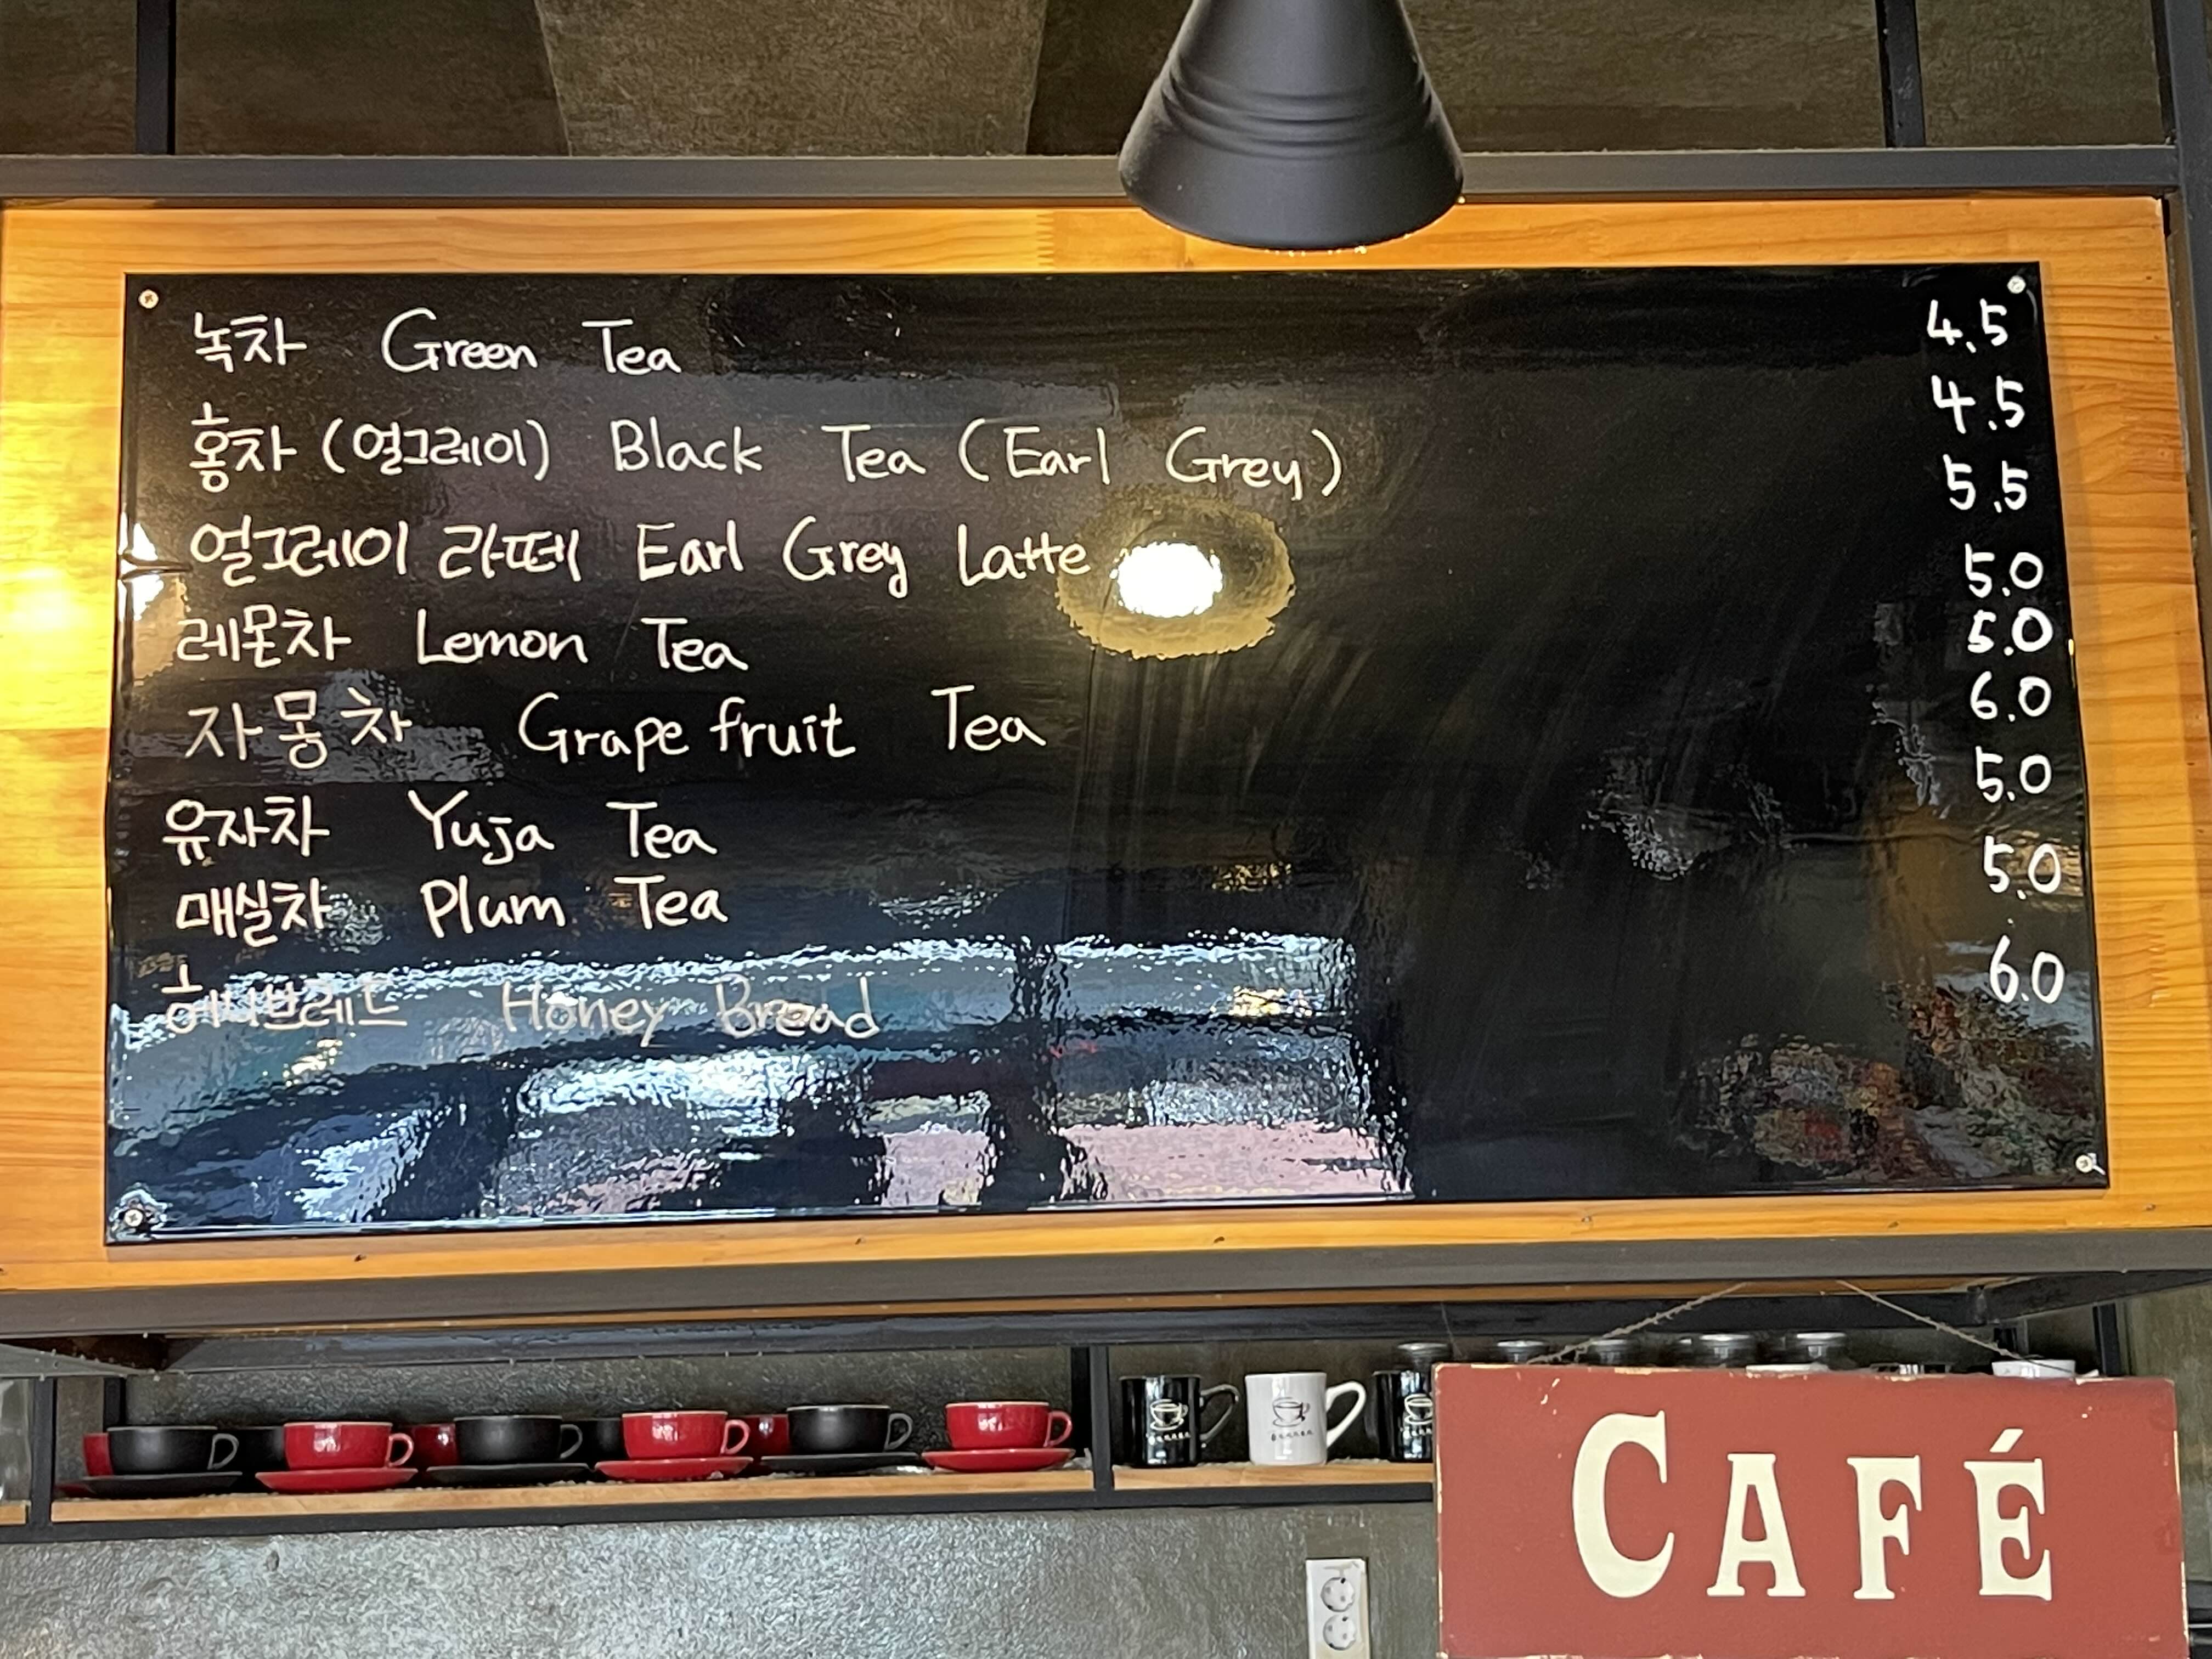 녹차 Green Tea
홍차 (얼그레이) Black Tea (Earl Grey)
얼그레이 라떼 Earl Grey Latte
레몬차 Lemon Tea
자몽차 Grape fruit Tea
유자차 Yuja Tea
매실차 Plum Tea
허니브레드 Honey Bread
4.5
4.5
5.5
5.0
5.0
6.0
5.0
5.0
6.0
CAFÉ